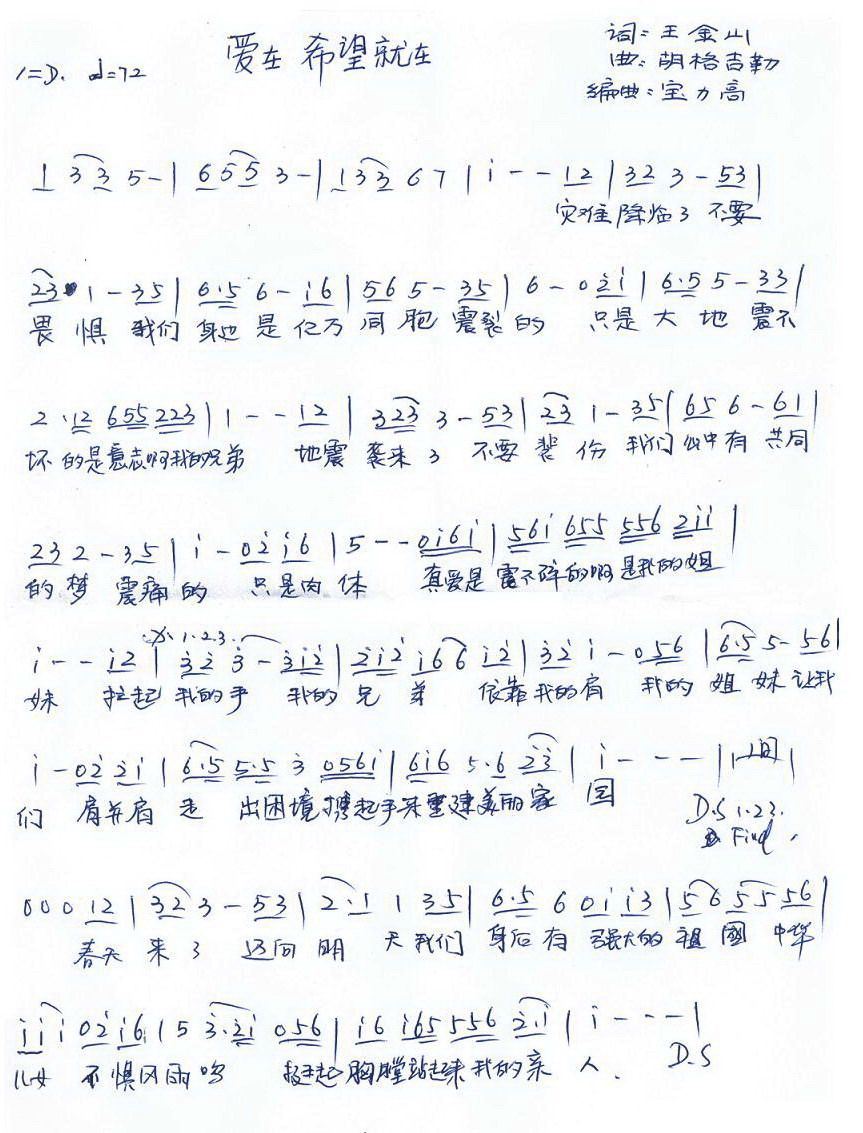 爱在 希望就在
词：王金山
曲：胡格吉勒
编曲：宝力高
1=D. d=72
1 3 3 5 - | 6 5 5 3 - | 1 3 3 6 7 | i - - 1 2 | 3 2 3 - 5 3 |
灾难降临了 不要
2 3 1 - 3 5 | 6.5 6 - i 6 | 5 6 5 - 3 5 | 6 - 0 2 i | 6.5 5 - 3 3 |
畏惧 我们 身边 是 亿万 同胞 震裂的 只是 大地 震不
2 . 1 2 6 5 5 2 2 3 | 1 - - 1 2 | 3 2 3 3 - 5 3 | 2 3 1 - 3 5 | 6 5 6 - 6 1 |
坏的是意志啊我的兄弟 地震 袭来了 不要 我们 心中有 共同
2 3 2 2 - 3 5 | i - 0 2 i 6 | 5 - - 0 i 6 i | 5 6 i 6 5 5 5 5 6 2 i i |
的梦 震痛的 只是肉体 真爱是 震不碎的啊 是我的姐
1.2.3.
i - - i 2 | 3 2 3 - 3 i 2 | 2 i 2 i 6 6 i 2 | 3 2 i - 0 5 6 | 6.5 5 - 5 6 |
妹 拉起 我的手 我的 兄弟 依靠我的肩 我的 姐妹 让我
i - 0 2 2 i | 6.5 5.5 3 0 5 6 i | 6 i 6 5.6 2 3 | i - - - | 1间 |
们 肩并肩 走 出困境携起手来重建美丽家 园
D.S 1.2.3.
Find
0 0 0 1 2 | 3 2 3 - 5 3 | 2 . 1 1 3 5 | 6.5 6 0 i i 3 | 5 6 5 5 5 6 |
春天 来了 迈向 明天 我们 身后 有 强大的 祖國 中华
i i i 0 2 i 6 | 5 3.2 i 0 5 6 | i 6 i 6 5 5 5 6 2.i | i - - - |
儿女 不惧风雨 挺起 胸膛站起来 我的亲 人.
D.S